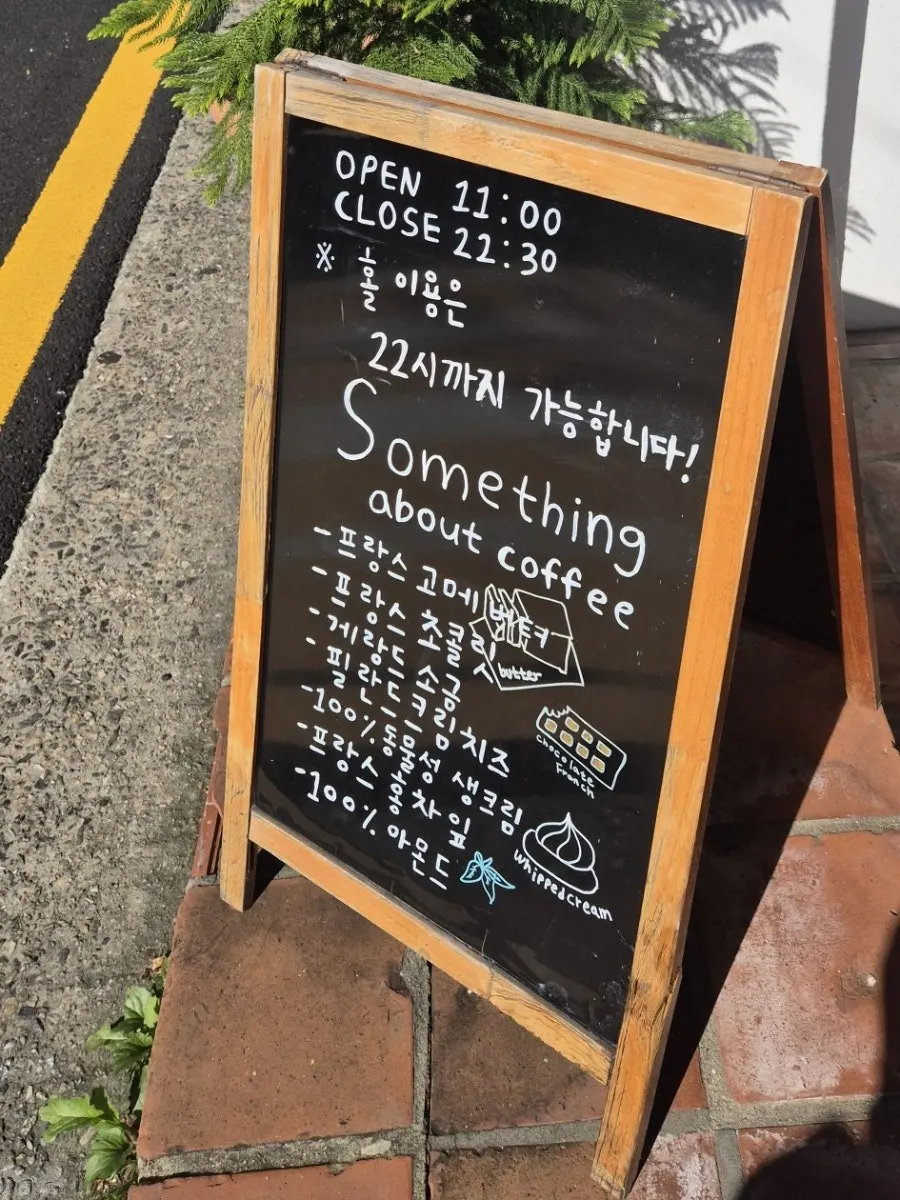 OPEN 11:00
CLOSE 22:30
※ 홀 이용은
22시까지 가능합니다!
Something
about coffee
-프랑스 고메버터
-프랑스 초콜릿
-게랑드 소금
-필란드크림치즈
-100% 동물성 생크림
-프랑스 홍차 잎
-100% 아몬드
butter
chocolate
Franch
whippedcream